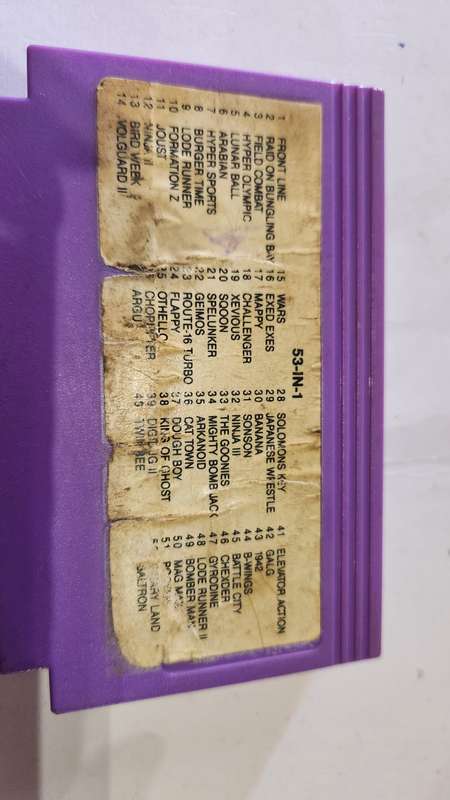 53-IN-1
1 FRONT LINE
2 RAID ON BUNGLING BAY
3 FIELD COMBAT
4 HYPER OLYMPIC
5 LUNAR BALL
6 ARABIAN
7 HYPER SPORTS
8 BURGER TIME
9 LODE RUNNER
10 FORMATION Z
11 JOUST
12 NINJA II
13 BIRD WEEK
14 VOLGUARD II
15 WARS
16 EXED EXES
17 MAPPY
18 CHALLENGER
19 XEVIOUS
20 SQOON
21 SPELUNKER
22 GEIMOS
23 ROUTE-16 TURBO
24 FLAPPY
25 OTHELLO
CHOPLIFTER
ARGU
28 SOLOMONS KEY
29 JAPANESE WRESTLE
30 BANANA
31 SONSON
32 NINJA III
33 THE GOONIES
34 MIGHTY BOMB JACK
35 ARKANOID
36 CAT TOWN
37 DOUGH BOY
38 KING OF GHOST
39 DIGDUG II
TWINBEE
41 ELEVATOR ACTION
42 GALG
43 1942
44 B-WINGS
45 BATTLE CITY
46 CHEXDER
47 GYRODINE
48 LODE RUNNER II
49 BOMBER MAN
50 MAG MAX
51
LAND
BALTRON